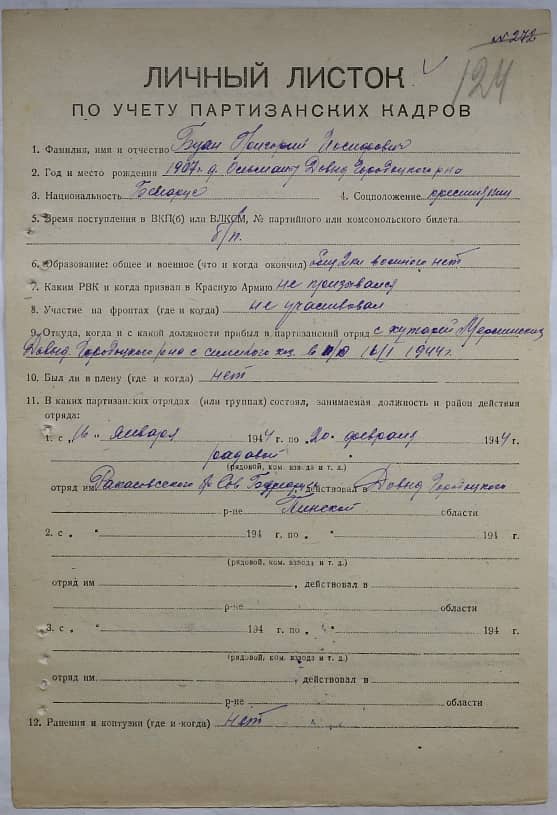 № 272
124
ЛИЧНЫЙ ЛИСТОК
ПО УЧЕТУ ПАРТИЗАНСКИХ КАДРОВ
1. Фамилия, имя и отчество Григорий Иосифович
2. Год и место рождения 1907 г. д. Давид Городоцкого р-на
3. Национальность Беларус 4. Соцположение крестьянин
5. Время поступления в ВКП(б) или ВЛКСМ, № партийного или комсомольского билета
б/п.
6. Образование: общее и военное (что и когда окончил) военного нет
7. Каким РВК и когда призван в Красную Армию не призывался
8. Участие на фронтах (где и когда) не участвовал
9. Откуда, когда и с какой должности прибыл в партизанский отряд с хуторов
Давид Городоцкого р-на с сельского хоз. в п/о 16/I 1944 г.
10. Был ли в плену (где и когда) нет
11. В каких партизанских отрядах (или группах) состоял, занимаемая должность и район действия
отряда:
1. с „16 „ января 1944 г. по „20„ февраля 1944 г.
рядовой
(рядовой, ком. взвода и т. д.)
отряд им Сов. действовал в Давид Городоцкого
р-не Пинской области
2. с „ „ 194 г. по „ „ 194 г.
(рядовой, ком. взвода и т. д.)
отряд им , действовал в
р-не области
3. с „ „ 194 г. по „ „ 194 г.
(рядовой, ком. взвода и т. д.)
отряд им , действовал в
р-не области
12. Ранения и контузии (где и когда) нет